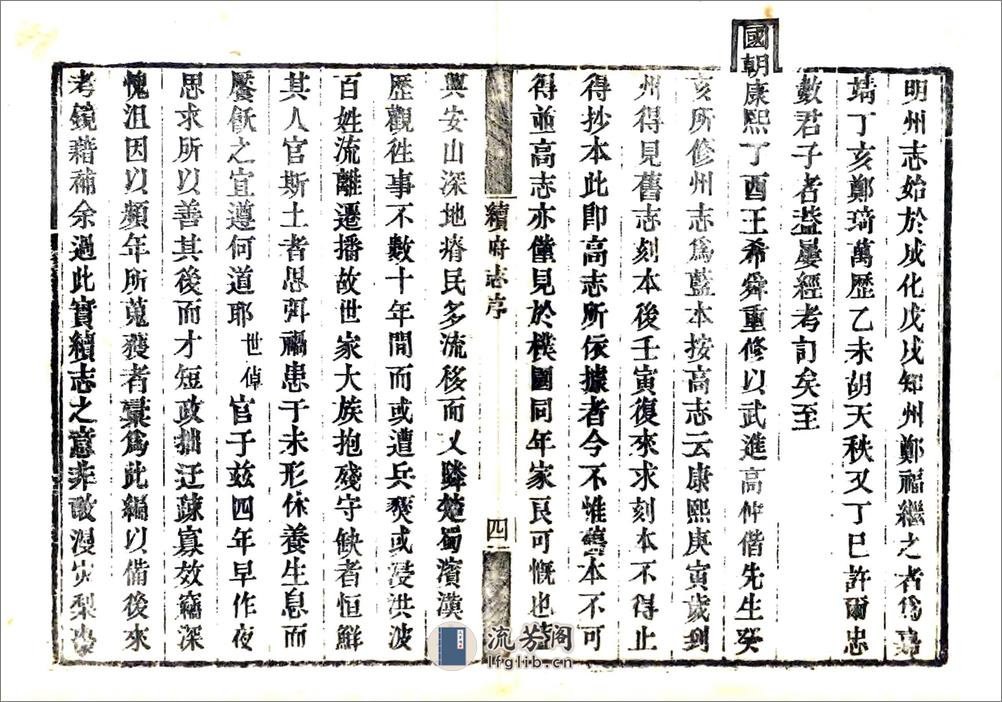 明州志始於成化戊戌知州鄭福繼之者爲嘉
靖丁亥鄭琦萬歷乙未胡天秩又丁巳許爾忠
數君子者葢屢經考訂矣至
國朝康熙丁酉王希舜重修以武進高仲偕先生癸
亥所修州志爲藍本按高志云康熙庚寅歲到
州得見舊志刻本後壬寅復來求刻本不得止
得抄本此卽高志所依據者今不惟舊本不可
得並高志亦僅見於樸園同年家良可慨也
續府志序
四
興安山深地瘠民多流移而又鄰楚蜀濱漢
歷觀徃事不數十年間而或遭兵燹或浸洪波
百姓流離遷播故世家大族抱殘守缺者恒鮮
其人官斯土者思弭禍患于未形休養生息而
饜飫之宜遵何道耶世倬官于兹四年早作夜
思求所以善其後而才短政拙迂疎寡效竊深
愧沮因以頻年所蒐獲者彙爲此編以備後來
考鏡藉補余過此實續志之意非敢漫災梨
流芳閣
lfglib.cn